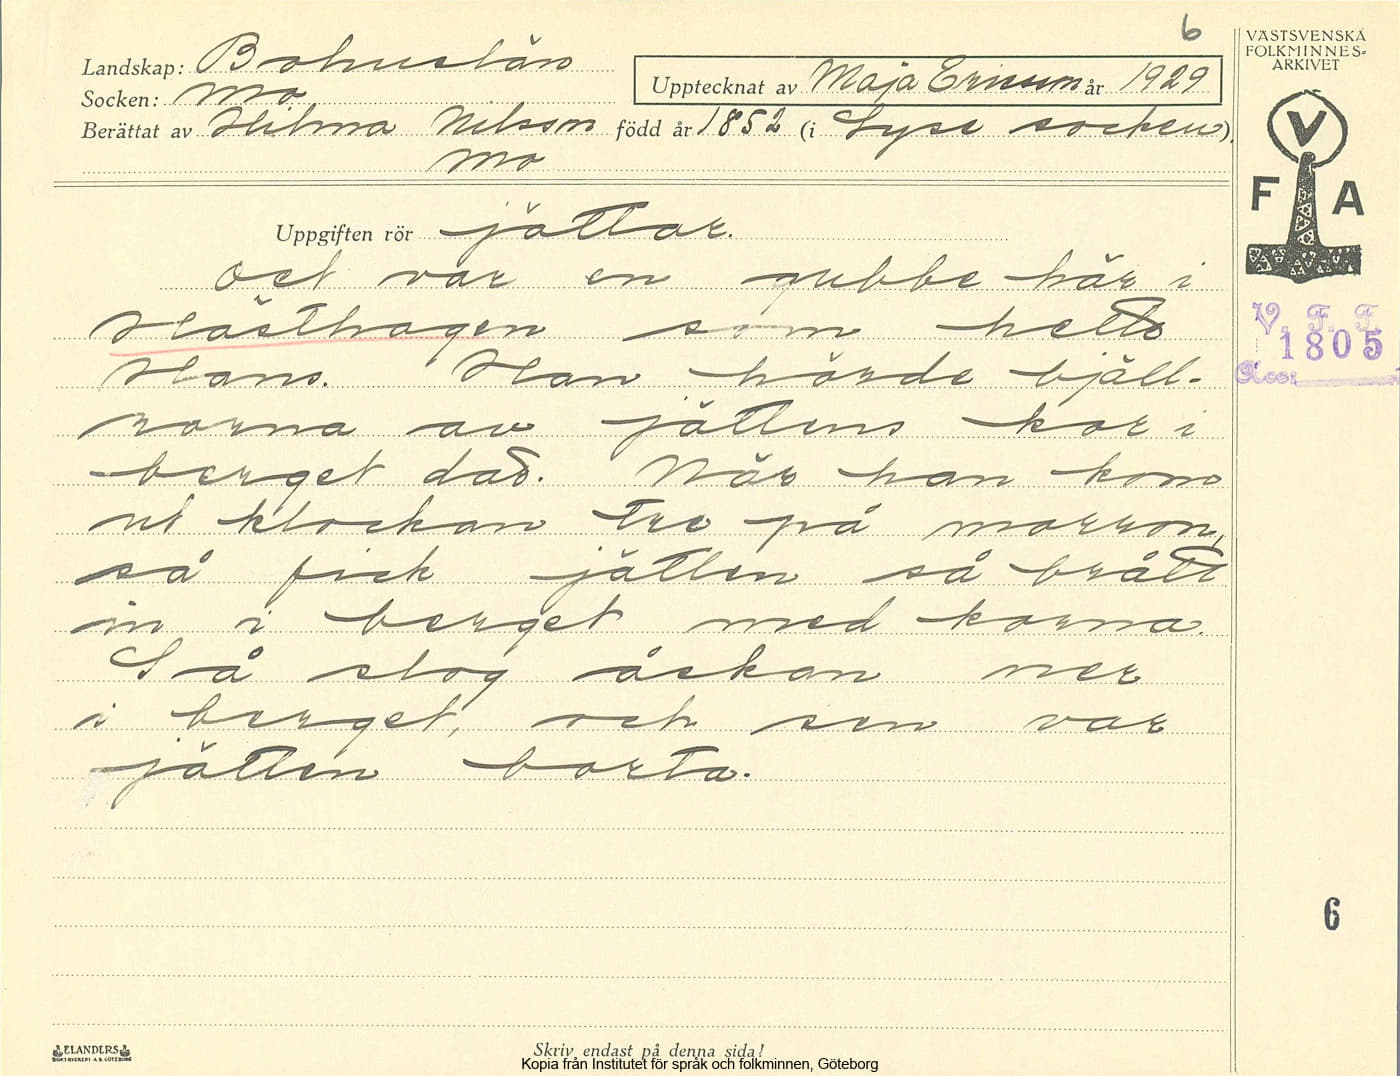 6
VÄSTSVENSKA
FOLKMINNES=
ARKIVET
Landskap: Bohuslän
Upptecknat av Maja Ericsson år 1929
Socken: Mo
Berättat av Hilma Nilsson född år 1852 (i Lyse socken),
Mo
V
F A
Uppgiften rör jättar.
Det var en gubbe här i
Hästhagen som hette
Hans. Han hörde bjäll-
rorna av jättens kor i
berget där. När han kom
ut klockan tre på morron,
så fick jätten så brått
in i berget med korna.
Så slog åskan ner
i berget, och sen var
jätten borta.
V. F. F.
1805
Acc:
6
ELANDERS
BOKTRYCKERI A.B. GÖTEBORG
Skriv endast på denna sida!
Kopia från Institutet för språk och folkminnen, Göteborg